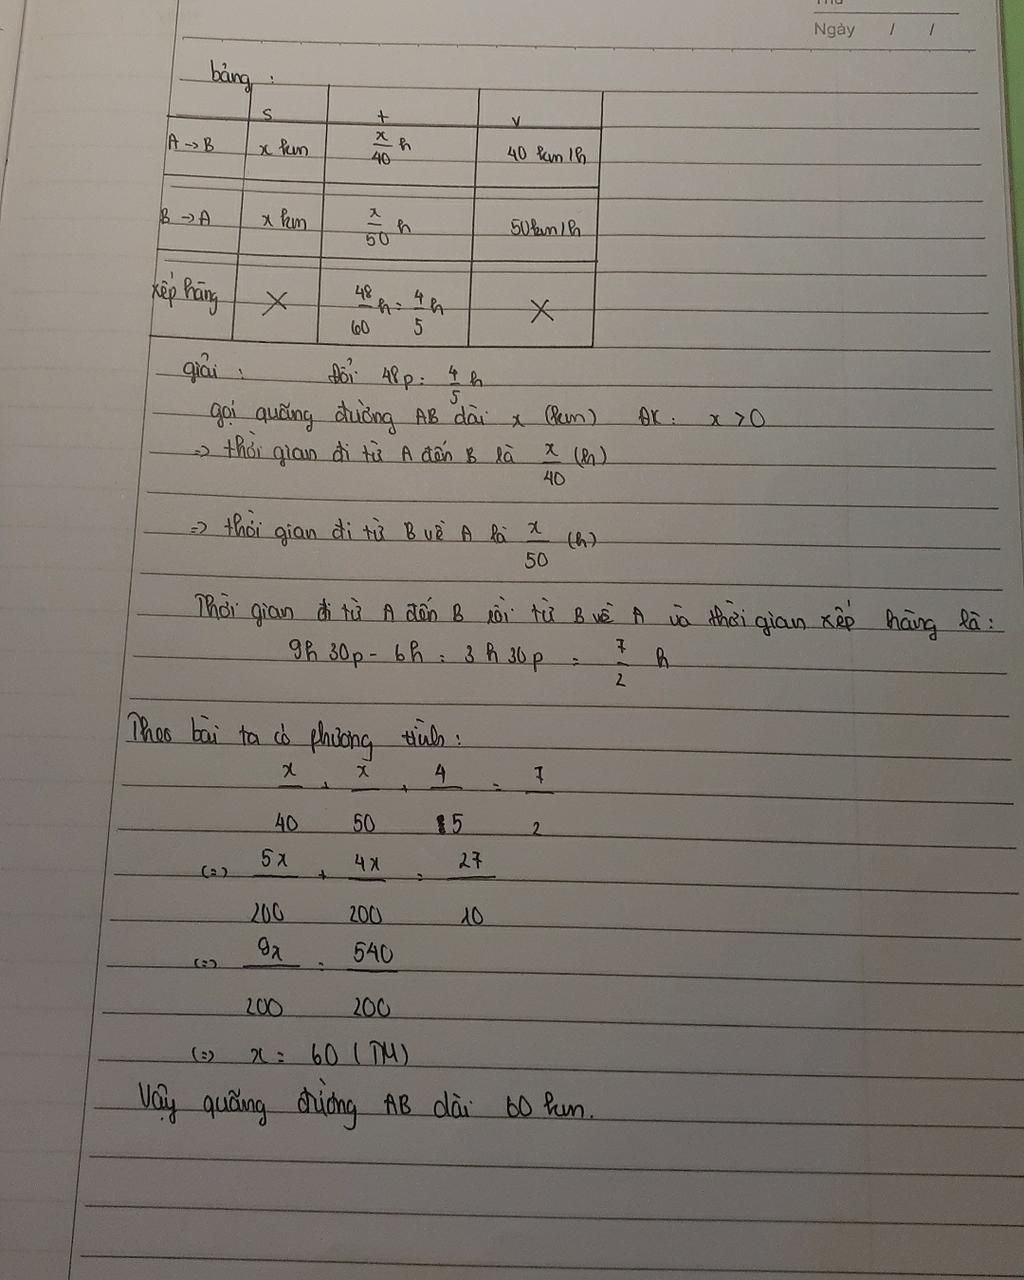 Thứ
Ngày / /
bảng :
s t v
A → B x km x/40 h 40 km/h
B → A x km x/50 h 50km/h
xếp hàng X 48/60 h = 4/5 h X
giải : Đổi 48p = 4/5 h
gọi quãng đường AB dài x (km) ĐK : x > 0
=> thời gian đi từ A đến B là x/40 (h)
=> thời gian đi từ B về A là x/50 (h)
Thời gian đi từ A đến B rồi từ B về A và thời gian xếp hàng là :
9h 30p - 6h = 3h 30p = 7/2 h
Theo bài ta có phương trình :
x/40 + x/50 + 4/5 = 7/2
(=) 5x/200 + 4x/200 = 27/10
(=) 9x/200 = 540/200
(=) x = 60 (TM)
Vậy quãng đường AB dài 60 km.